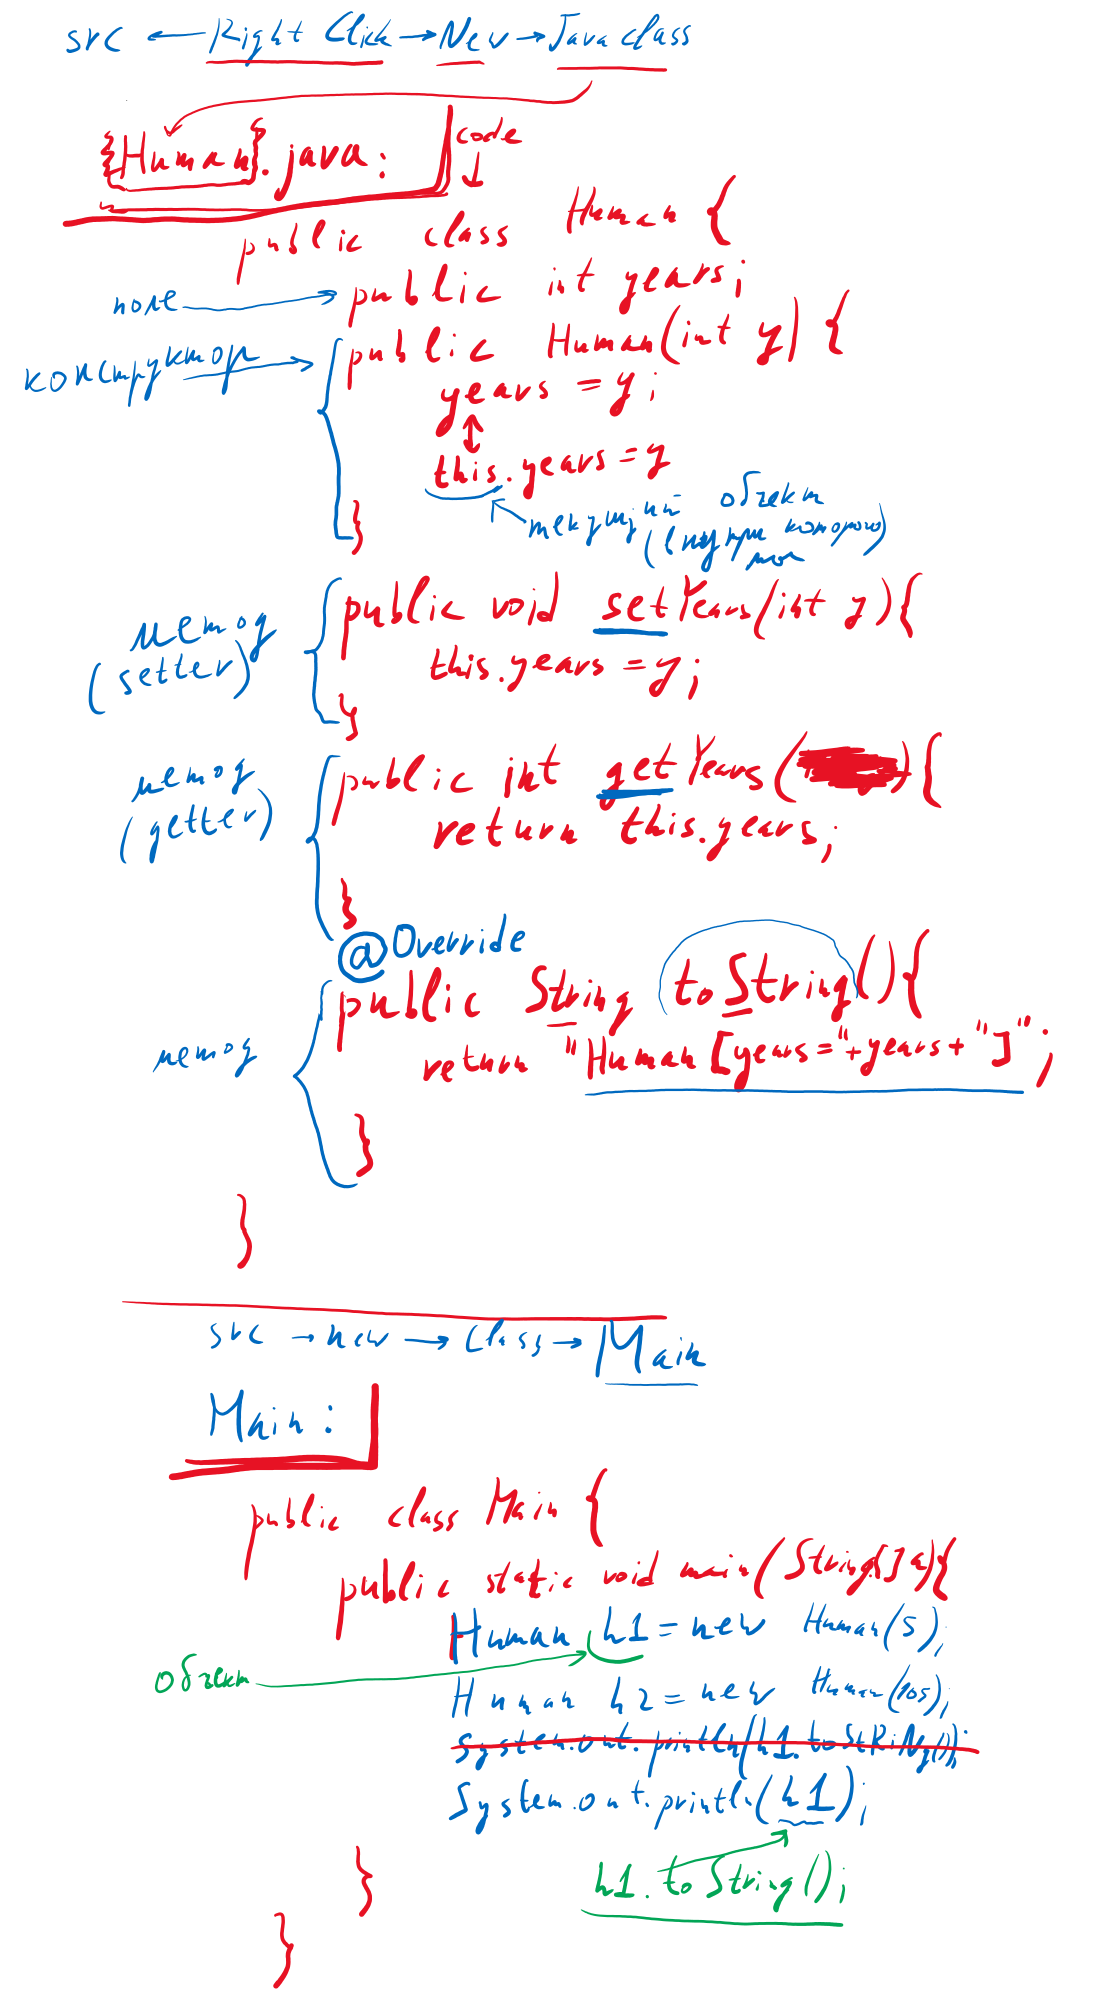 src ← Right Click → New → Java class
{Human}.java:
code
public class Human {
поле → public int years;
конструктор → public Human(int y) {
years = y;
this.years = y
текущий объект
(внутри которого
}
метод (setter)
public void setYears(int y){
this.years = y;
}
метод (getter)
public int getYears( ){
return this.years;
}
@Override
public String toString(){
метод
return "Human [years="+years+"]";
}
}
src → new → Class → Main
Main:
public class Main {
public static void main(String[] a){
Human h1 = new Human(5);
объект
Human h2 = new Human(105);
System.out.println(h1.toStRiNg());
System.out.println(h1);
h1.toString();
}
}